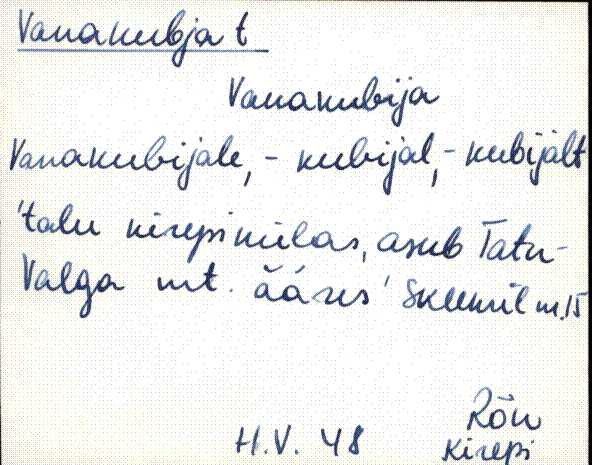 Vanakubja t
Vanakubija
Vanakubijale, - kubijal, - kubijalt
'talu kirepi külas, asub Tatu-
Valga mt. ääres' skeemil nr. 15
Rõn
H.V. 48 Kirepi